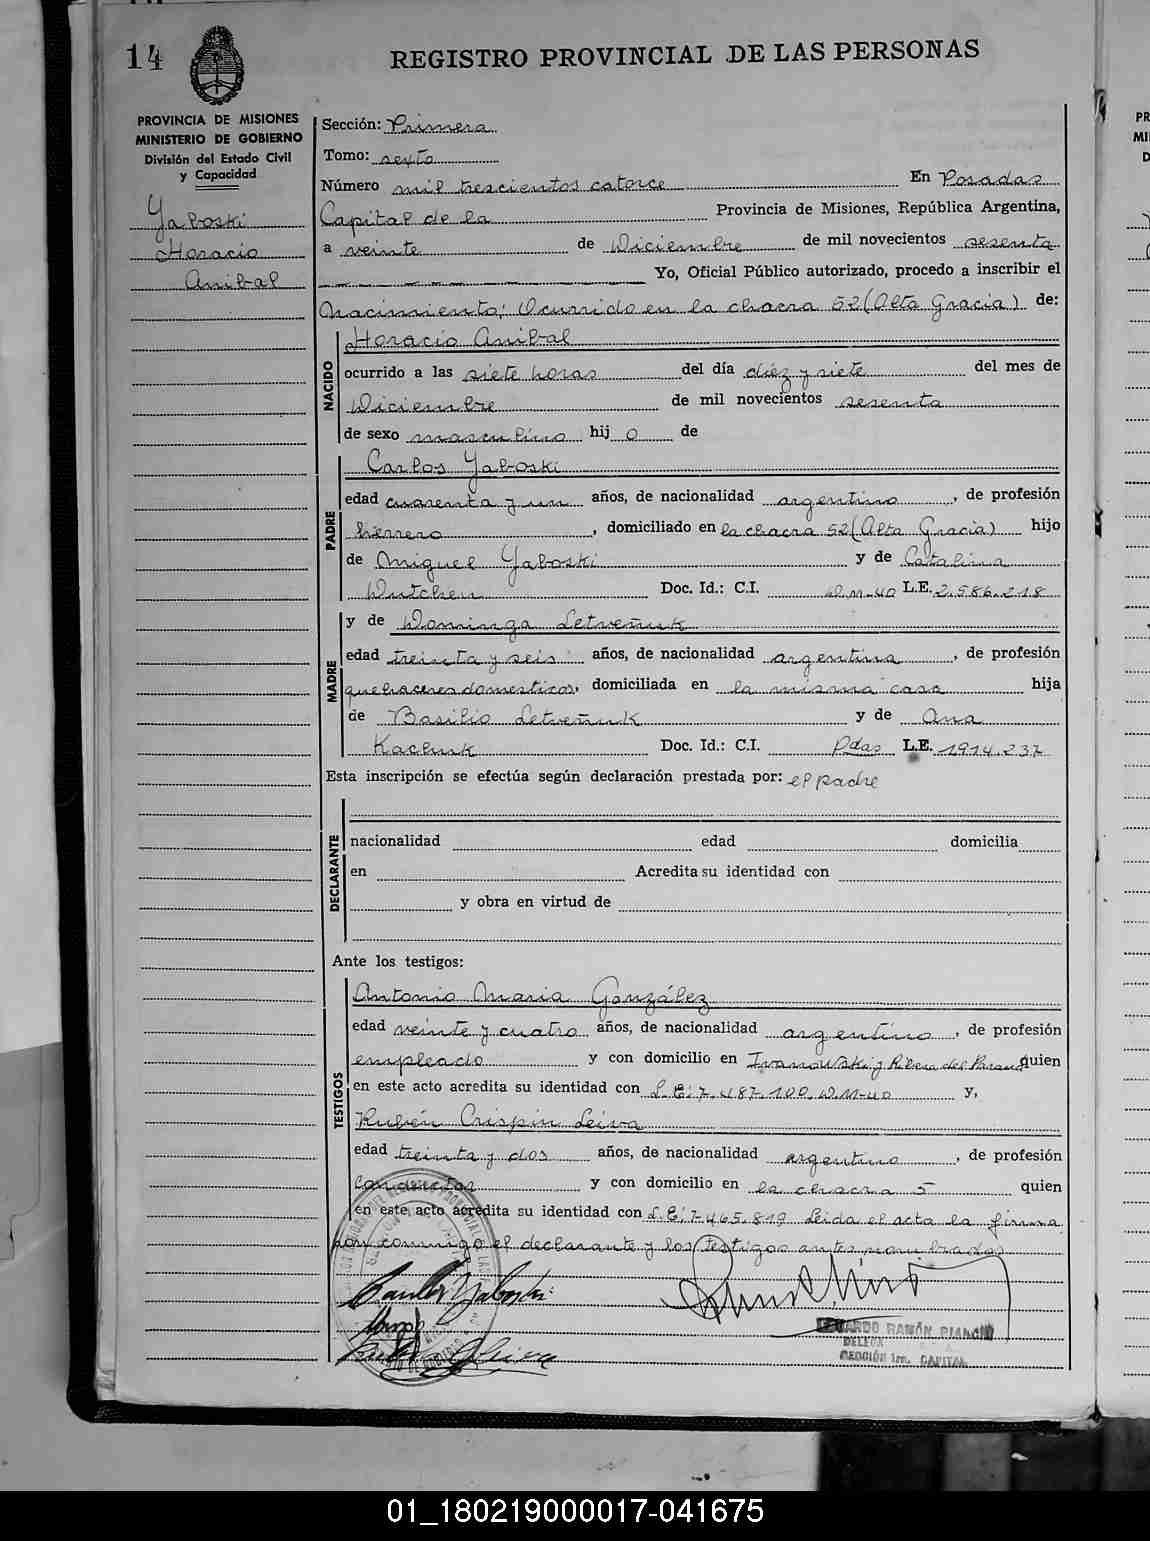 14
REGISTRO PROVINCIAL DE LAS PERSONAS
PROVINCIA DE MISIONES
MINISTERIO DE GOBIERNO
División del Estado Civil
y Capacidad
Yaboski
Horacio
Anibal
Sección: Primera
Tomo: sexto
Número mil trescientos catorce En Posadas
Capital de la Provincia de Misiones, República Argentina,
a veinte de Diciembre de mil novecientos sesenta
Yo, Oficial Público autorizado, procedo a inscribir el
nacimiento; Ocurrido en la chacra 52 (Alta Gracia) de:
NACIDO
Horacio Anibal
ocurrido a las siete horas del día diez y siete del mes de
Diciembre de mil novecientos sesenta
de sexo masculino hij o de
PADRE
Carlos Yaboski
edad cuarenta y un años, de nacionalidad argentino, de profesión
herrero, domiciliado en la chacra 52 (Alta Gracia) hijo
de Miguel Yaboski y de Catalina
Dutchen Doc. Id.: C.I. D.M-40 L.E. 2.586.218
MADRE
y de Dominga Letveñuk
edad treinta y seis años, de nacionalidad argentina, de profesión
quehaceres domesticos, domiciliada en la misma casa hija
de Basilio Letveñuk y de Ana
Kachuk Doc. Id.: C.I. Pdas L.E. 1914.237
Esta inscripción se efectúa según declaración prestada por: el padre
DECLARANTE
nacionalidad edad domicilia
en Acredita su identidad con
y obra en virtud de
Ante los testigos:
TESTIGOS
Antonio Maria González
edad veinte y cuatro años, de nacionalidad argentino, de profesión
empleado y con domicilio en Ivanowski y Ribera del Paraná quien
en este acto acredita su identidad con L.E; 7.487.100. D.M-40 y,
Rubén Crispin Leiva
edad treinta y dos años, de nacionalidad argentino, de profesión
conductor y con domicilio en la chacra 5 quien
en este acto acredita su identidad con L.E; 7.465.819 Leida el acta la firma
con conmigo el declarante y los testigos antes nombrados
Carlos Yaboski
Leiva
EDUARDO RAMÓN
SECCIÓN 1ra. CAPITAL
01_180219000017-041675